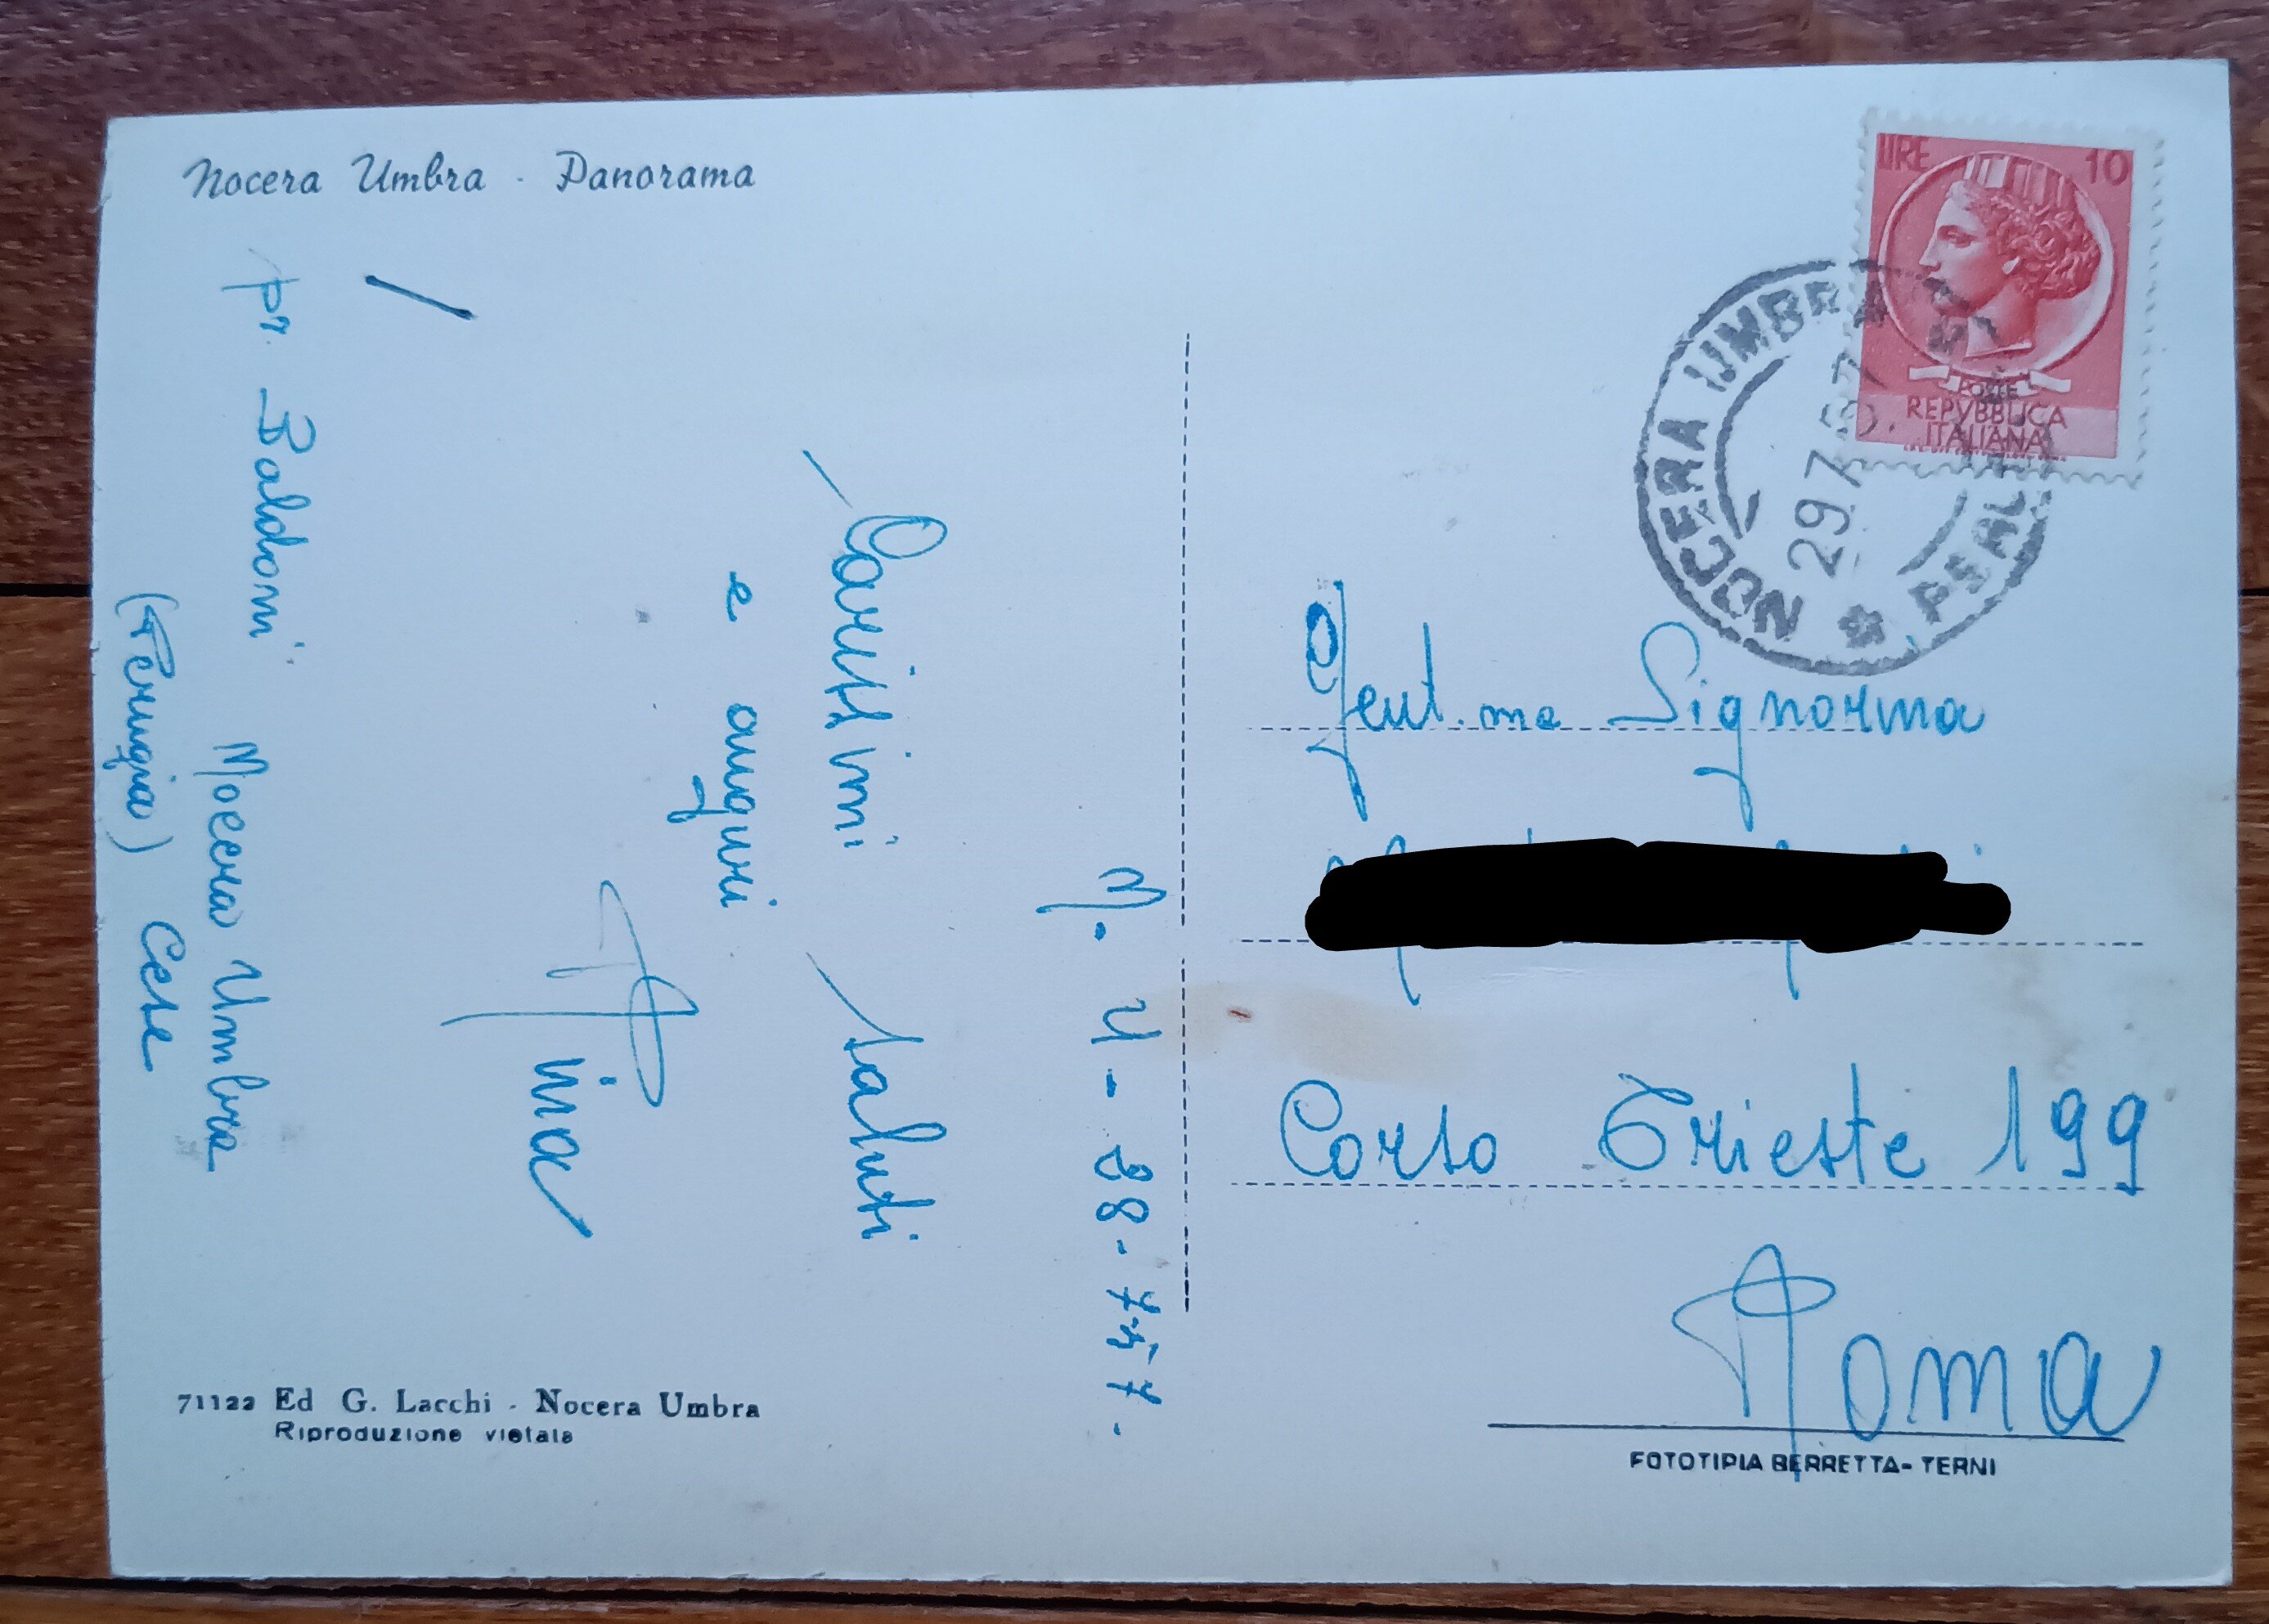 Nocera Umbra - Panorama
N. U - 28 - 7 - 57.
Carissimi saluti
e auguri
Pina
pr. Baldoni Nocera Umbra
(Perugia) Cese
71122 Ed G. Lacchi - Nocera Umbra
Riproduzione vietata
LIRE 10
POSTE
REPVBBLICA
ITALIANA
NOCERA UMBRA
29 7 57
Gent.ma Signorina
Corso Trieste 199
Roma
FOTOTIPIA BERRETTA - TERNI